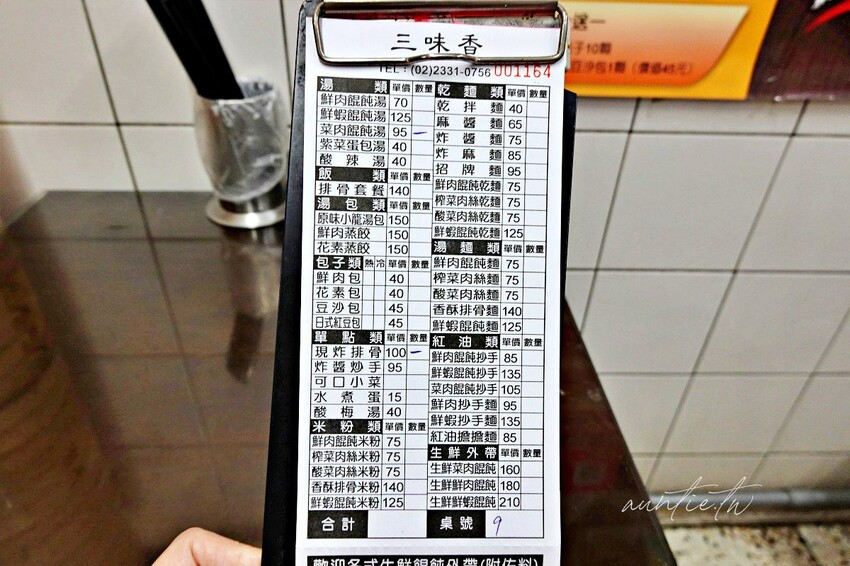 三味香
TEL：(02)2331-0756 001164
送一
子10顆
豆沙包1顆（價值45元）
湯類 單價 數量
鮮肉餛飩湯 70
鮮蝦餛飩湯 125
菜肉餛飩湯 95 一
紫菜蛋包湯 40
酸辣湯 40
飯類 單價 數量
排骨套餐 140
湯包類 單價 數量
原味小籠湯包 150
鮮肉蒸餃 150
花素蒸餃 150
包子類 熱 冷 單價 數量
鮮肉包 40
花素包 40
豆沙包 45
日式紅豆包 45
單點類 單價 數量
現炸排骨 100 一
炸醬炒手 95
可口小菜
水煮蛋 15
酸梅湯 40
米粉類 單價 數量
鮮肉餛飩米粉 75
榨菜肉絲米粉 75
酸菜肉絲米粉 75
香酥排骨米粉 140
鮮蝦餛飩米粉 125
合計
乾麵類 單價 數量
乾拌麵 40
麻醬麵 65
炸醬麵 75
炸麻麵 85
招牌麵 95
鮮肉餛飩乾麵 75
榨菜肉絲乾麵 75
酸菜肉絲乾麵 75
鮮蝦餛飩乾麵 125
湯麵類 單價 數量
鮮肉餛飩麵 75
榨菜肉絲麵 75
酸菜肉絲麵 75
香酥排骨麵 140
鮮蝦餛飩麵 125
紅油類 單價 數量
鮮肉餛飩抄手 85
鮮蝦餛飩抄手 135
菜肉餛飩抄手 105
鮮肉抄手麵 95
鮮蝦抄手麵 135
紅油擔擔麵 85
生鮮外帶 單價 數量
生鮮菜肉餛飩 160
生鮮鮮肉餛飩 180
生鮮鮮蝦餛飩 210
桌號 9
歡迎各式生鮮餛飩外帶(附佐料)
auntie.tw